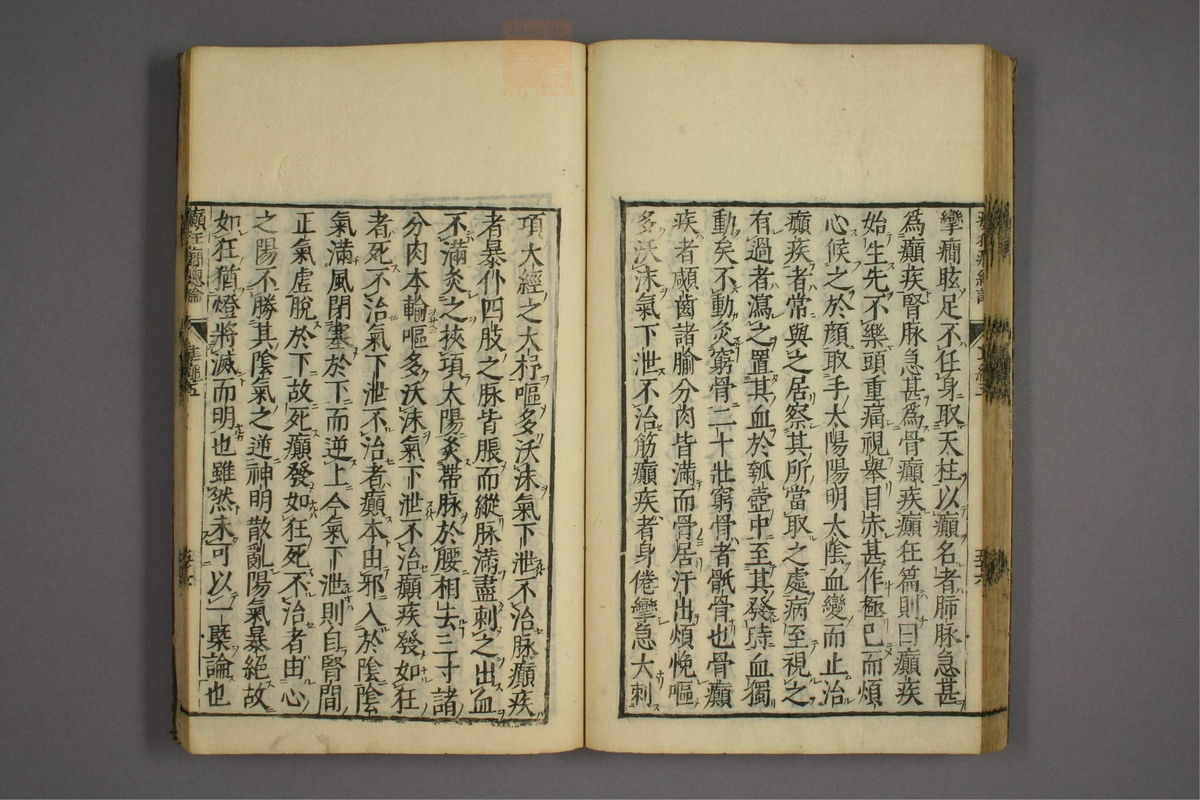 攣癎眩足不任身取天柱以癲名者肺脉急甚
爲癲疾腎脉急甚爲骨癲疾癲狂篇則曰癲疾
始生先不樂頭重痛視舉目赤甚作極已而煩
心候之於顔取手太陽陽明太陰血變而止治
癲疾者常與之居察其所當取之處病至視之
有過者瀉之置其血於瓠壺中至其發時血獨
動矣不動灸窮骨二十壯窮骨者骶骨也骨癲
疾者顑齒諸腧分肉皆滿而骨居汗出煩悗嘔
多沃沫氣下泄不治筋癲疾者身倦攣急大刺
項大經之大杼嘔多沃沫氣下泄不治脉癲疾
者暴仆四肢之脉皆脹而縱脉滿盡刺之出血
不滿灸之挾項太陽灸帶脉於腰相去三寸諸
分肉本輸嘔多沃沫氣下泄不治癲疾發如狂
者死不治氣下泄不治者癲本由邪入於陰陰
氣滿風閉塞於下而逆上今氣下泄則自腎間
正氣虛脫於下故死癲發如狂死不治者由心
之陽不勝其陰氣之逆神明散亂陽氣暴絕故
如狂猶燈將滅而明也雖然未可以一槩論也
癲狂癎總論